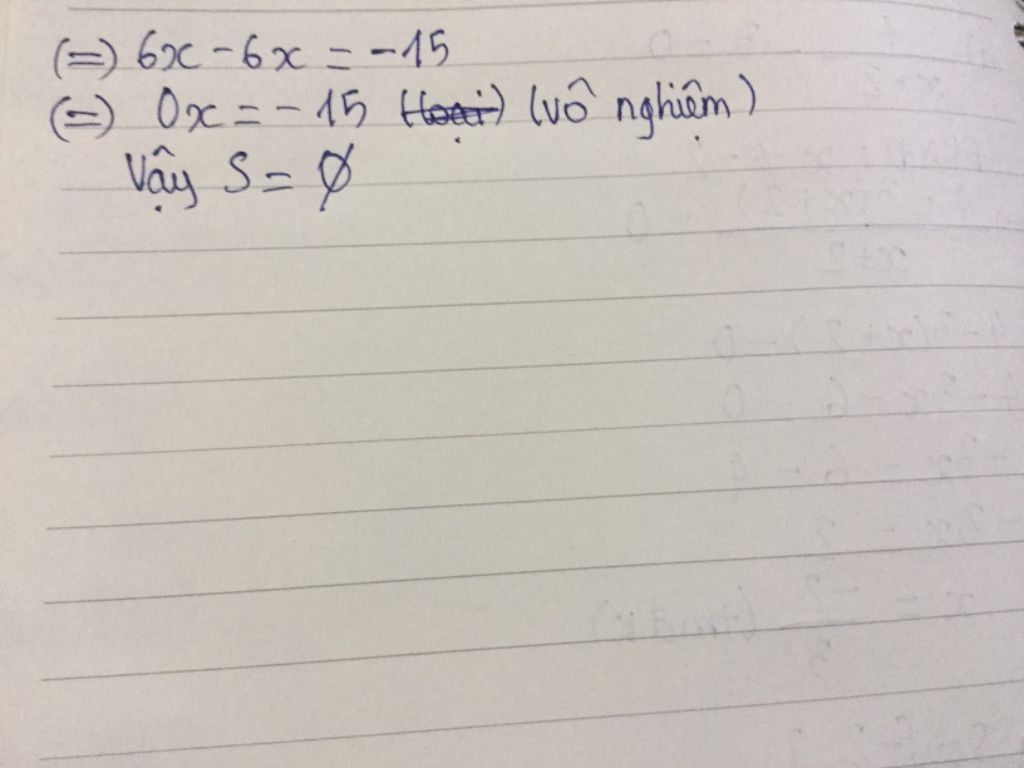 (=) 6x - 6x = -15
(=) 0x = -15 (loại) (vô nghiệm)
Vậy S = ∅